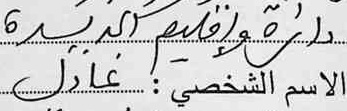 دائرة وإقليم الدريسة
الاسم الشخصي : عادل